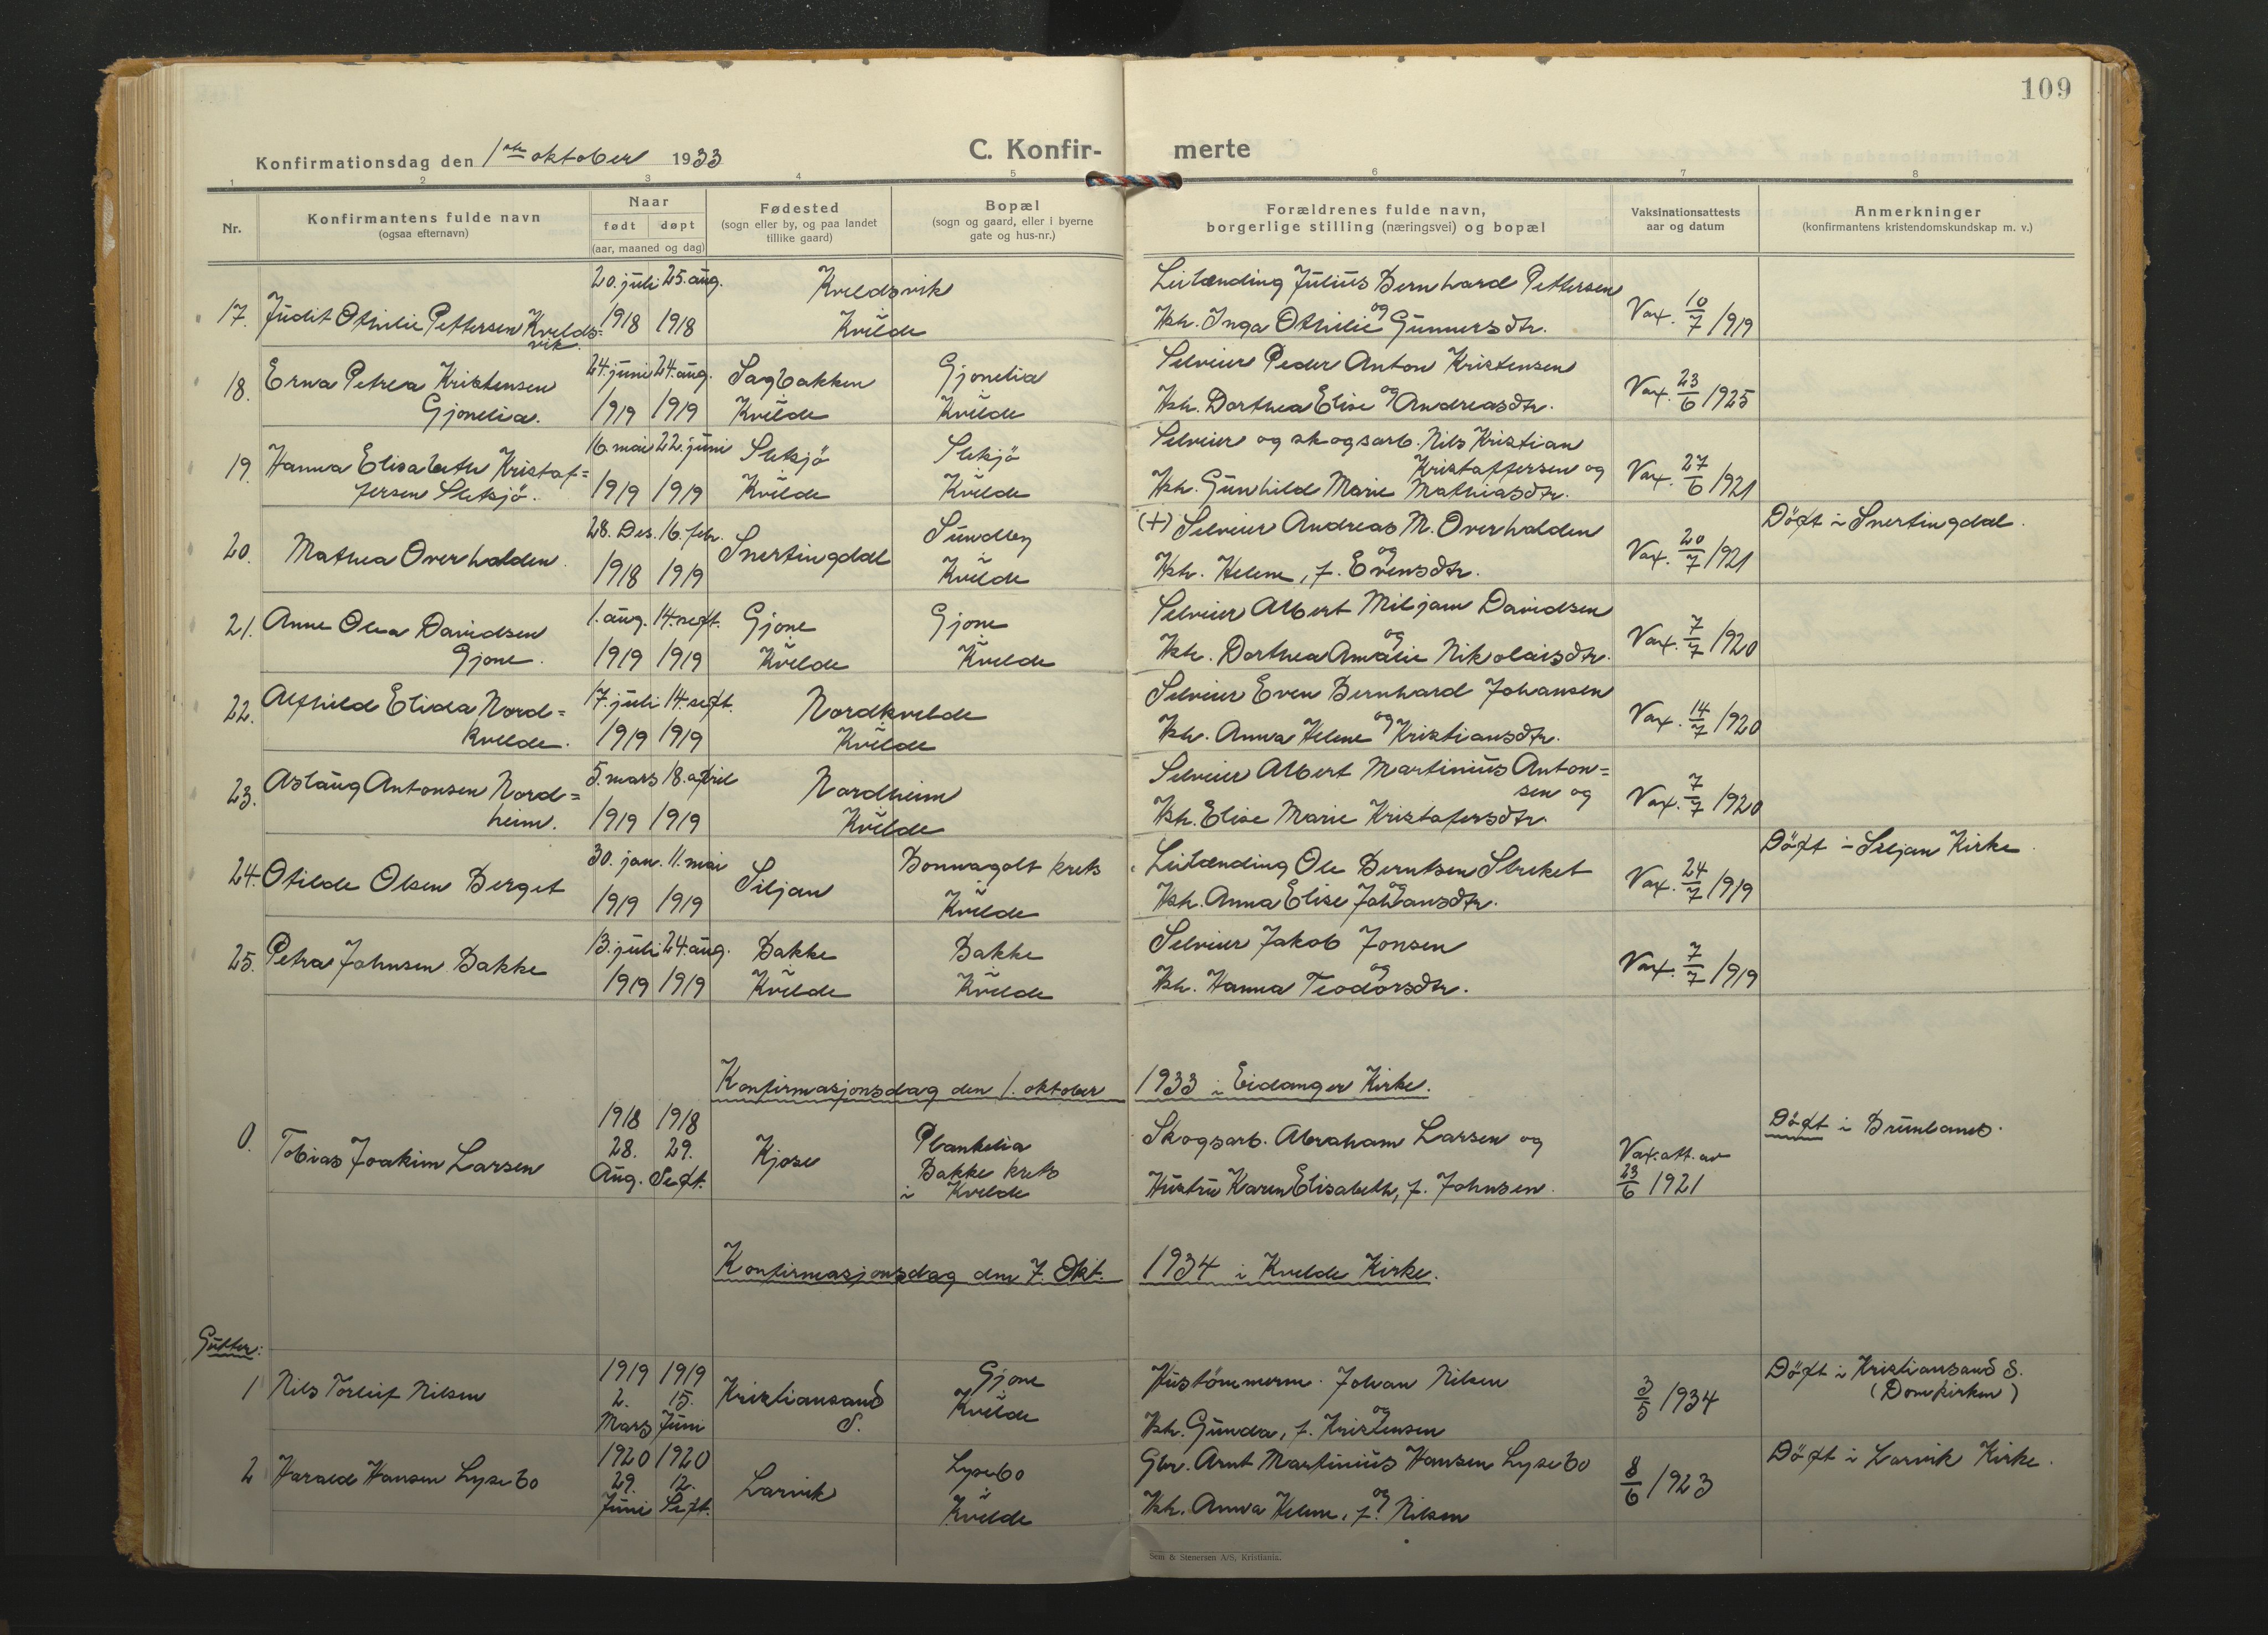 109
Konfirmationsdag den 1ste oktober 1933
C. Konfir- merte
1 2 3 4 5 6 7 8
Nr.
Konfirmantens fulde navn
(ogsaa efternavn)
Naar
født døpt
(aar, maaned og dag)
Fødested
(sogn eller by, og paa landet
tillike gaard)
Bopæl
(sogn og gaard, eller i byerne
gate og hus-nr.)
Forældrenes fulde navn,
borgerlige stilling (næringsvei) og bopæl
Vaksinationsattests
aar og datum
Anmerkninger
(konfirmantens kristendomskundskap m. v.)
20. juli 25. aug. Kveldsvik Leilænding Julius Bernhard Pettersen
17. Judit Othilie Pettersen Kvelds= 1918 1918 i Kvelde og Vax. 10/7 1919
vik. Hstr. Inga Othilie Gunnersdtr.
24. juni 24. aug. Sagbakken Gjonelia Selveier Peder Anton Kristensen
18. Erna Petrea Kristensen i i og Vax. 23/6 1925
Gjonelia. 1919 1919 Kvelde Kvelde Hstr. Dorthea Elise Andreasdtr.
16. mai 22. juni Sletsjö Sletsjö Selveier og skogsarb. Nils Kristian
19. Hanna Elisabeth Kristaf= i i Kristaffersen og Vax. 27/6 1921
fersen Sletsjö. 1919 1919 Kvelde Kvelde Hstr. Gunhild Marie Mathiasdtr.
28. Des. 16. febr. Snertingdal Sundby (+) Selveier Andreas M. Overhalden Döpt i Snertingdal.
20. Mathea Overhalden. i og Vax. 20/7 1921
1918 1919 Kvelde Hstr. Helene, f. Evensdtr.
1. aug. 14. sept. Gjone Gjone Selveier Albert Miljam Davidsen
21. Anne Olea Davidsen i i og Vax. 7/7 1920
Gjone. 1919 1919 Kvelde Kvelde Hstr. Dorthea Amalie Nikolaisdtr.
17. juli 14. sept. Nordkvelde Selveier Even Bernhard Johansen
22. Alfhild Elida Nord= i og Vax. 14/7 1920
kvelde. 1919 1919 Kvelde Hstr. Anna Helene Kristiansdtr.
5. mars 18. april Nordheim Selveier Albert Martinius Anton=
23. Aslaug Antonsen Nord= i sen og Vax. 7/7 1920
heim. 1919 1919 Kvelde Hstr. Elise Marie Kristafersdtr.
30. jan. 11. mai Siljan Bonnagolt krets Leilænding Ole Berntsen Streket Döpt i Siljan Kirke.
24. Otilde Olsen Berget i og Vax. 24/7 1919
1919 1919 Kvelde Hstr. Anna Elise Johansdtr.
13. juli 24. aug. Bakke Bakke Selveier Jakob Jonsen
25. Petra Johnsen Bakke i i og Vax. 7/7 1919
1919 1919 Kvelde Kvelde Hstr. Hanna Teodorsdtr.
Konfirmasjonsdag den 1. oktober 1933 i Eidanger Kirke.
1918 1918 Döpt i Brunlanes.
0. Tobias Joakim Larsen 28. 29. Kjose Plankelia Skogsarb. Abraham Larsen og Vax. att. av
Aug. Sept. Bakke krets 23/6 1921
i Kvelde Hustru Karen Elisabeth, f. Johnsen.
Konfirmasjonsdag den 7. Okt. 1934 i Kvelde Kirke.
Gutter:
1919 1919 Gjone Hustömmerm. Johan Nilsen Döpt i Kristiansand S.
1 Nils Torleif Nilsen 2. 15. Kristiansand i og 3/5 1934 (Domkirken)
Mars Juni S. Kvelde Hstr. Gunda, f. Kristensen
1920 1920 Lysebo Gbr. Arnt Martinius Hansen Lysebo Döpt i Larvik Kirke.
2 Harald Hansen Lysebo 29. 12. Larvik i og 8/6 1923
Juni Sept. Kvelde Hstr. Anna Helene, f. Nilsen
Sem & Stenersen A/S, Kristiania.